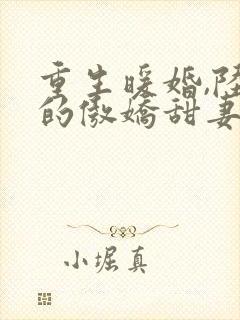 重生暖婚,陆
的傲娇甜妻
小堀真